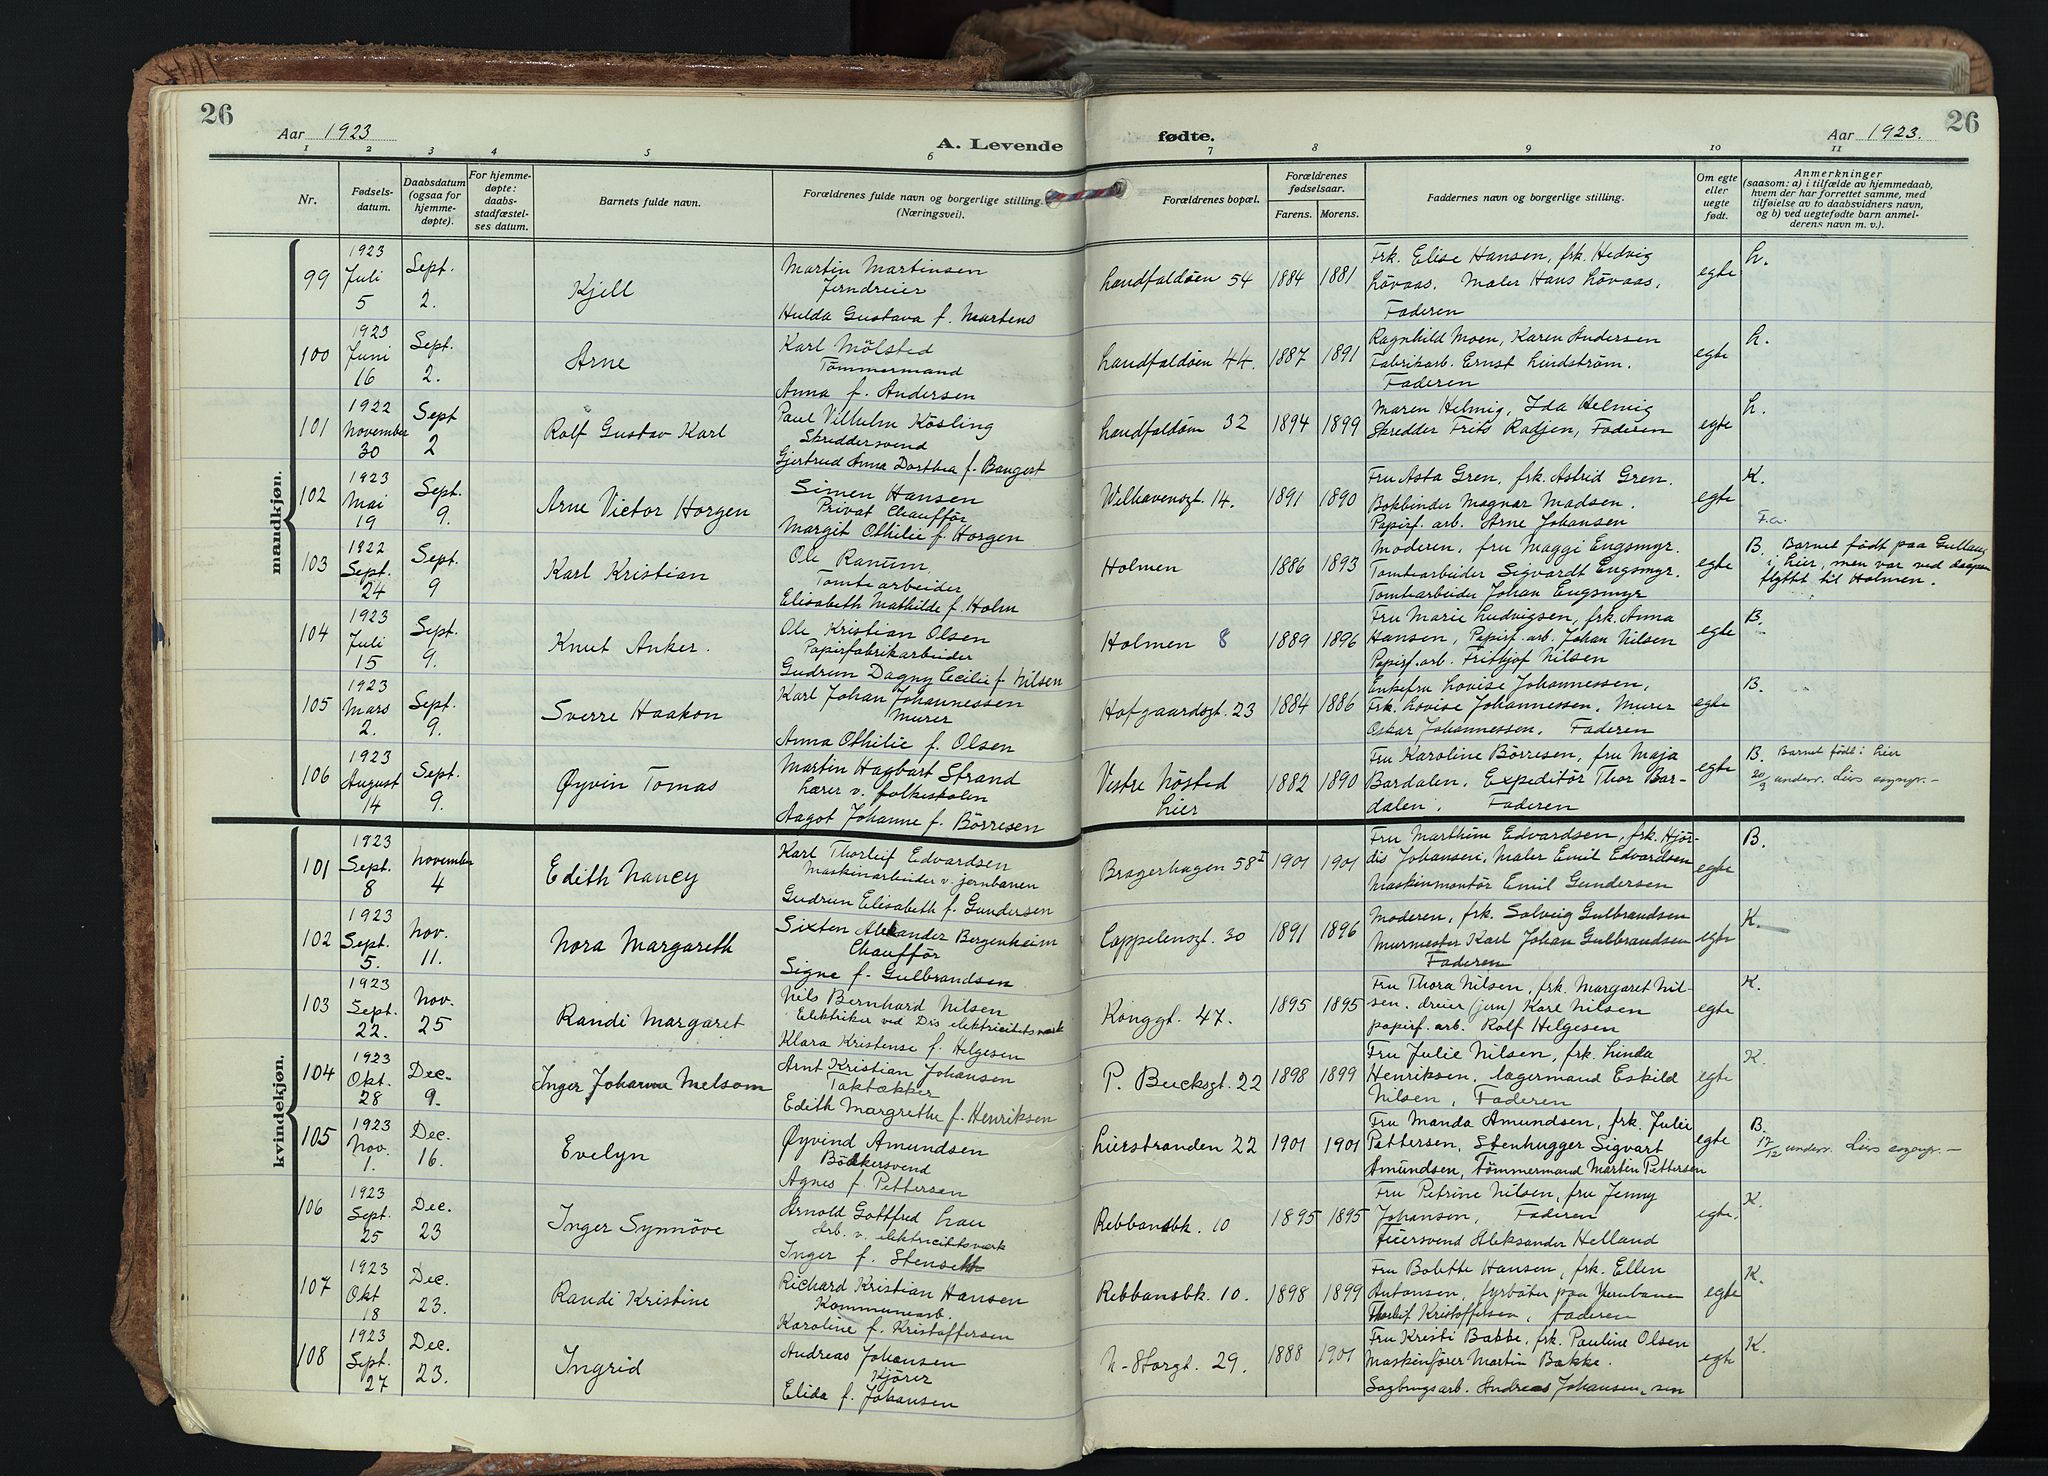 26
Aar 1923
A. Levende
fødte.
Aar 1923.
26
1 2 3 4 5 6 7 8 9 10 11
Nr.
Fødsels-
datum.
Daabsdatum
(ogsaa for
hjemme-
døpte).
For hjemme-
døpte:
daabs-
stadfæstel-
ses datum.
Barnets fulde navn.
Forældrenes fulde navn og borgerlige stilling.
(Næringsvei).
Forældrenes bopæl.
Forældrenes
fødselsaar.
Farens. Morens.
Faddernes navn og borgerlige stilling.
Om egte
eller
uegte
født.
Anmerkninger
(saasom: a) i tilfælde av hjemmedaab,
hvem der har forrettet samme, med
tilføielse av to daabsvidners navn,
og b) ved uegtefødte barn anmel-
derens navn m. v.).
mandkjøn.
99
1923
Juli
5
Sept.
2.
Kjell
Martin Martinsen
Jerndreier
Hulda Gustava f. Martens
Landfaldöen 54
1884 1881
Frk. Elise Hansen, frk. Hedvig
Lövaas. Maler Hans Lövaas,
Faderen
egte
L.
100
1923
Juni
16
Sept.
2.
Arne
Karl Mölsted
Tömmermand
Anna f. Andersen
Landfaldöen 44.
1887 1891
Ragnhild Moen, Karen Andersen
Fabrikarb. Ernst Lindström.
Faderen
egte
L.
101
1922
November
30
Sept
2
Rolf Gustav Karl
Paul Vilhelm Kösling
Skreddersvend
Gjertrud Anna Dorthea f. Bangert
Landfaldöen 32
1894 1899
Maren Helmig, Ida Helmig
Skredder Frits Radjen, Faderen
egte
L.
102
1923
Mai
19
Sept.
9.
Arne Victor Horgen
Simen Hansen
Privat Chaufför
Margit Othilie f. Horgen
Welhavensgt. 14.
1891 1890
Fru Asta Gren, frk. Astrid Gren.
Bokbinder Magnar Madsen.
Papirf. arb. Arne Johansen
egte
K.
F.a.
103
1922
Sept.
24
Sept.
9
Karl Kristian
Ole Ranum.
Tomtearbeider
Elisabeth Mathilde f. Holm
Holmen
1886 1893
Moderen, fru Maggi Engsmyr.
Tomtearbeider Sigvardt Engsmyr.
Tomtearbeider Johan Engsmyr
egte
B. Barnet født paa Gullaug
i Lier, men var ved daapen
flyttet til Holmen.
104
1923
Juli
15
Sept.
9.
Knut Anker.
Ole Kristian Olsen
Papirfabrikarbeider
Gudrun Dagny Cecilie f. Nilsen
Holmen 8
1889 1896
Fru Marie Ludvigsen, frk. Anna
Hansen, Papirf. arb. Johan Nilsen
Papirf. arb. Fritjof Nilsen
egte
B.
105
1923
Mars
2.
Sept.
9.
Sverre Haakon
Karl Johan Johannessen
Murer
Anna Othilie f. Olsen
Hofgaardsgt. 23
1884 1886
Enkefru Lovise Johannessen,
frk. Lovise Johannessen, Murer
Oskar Johannessen, Faderen
egte
B.
106
1923
August
14
Sept.
9.
Øyvin Tomas
Martin Hagbart Strand
Lærer v. folkeskolen
Aagot Johanne f. Börresen
Vestre Nösted
Lier
1882 1890
Fru Karoline Börresen, fru Maja
Bardalen, Expeditör Thor Bar-
dalen, Faderen
egte
B. Barnet født i Lier
20/9 underr. Liers sognepr. –
kvindekjøn.
101
1923
Sept.
8
November
4
Edith Nancy
Karl Thorleif Edvardsen
Maskinarbeider v. jernbanen
Gudrun Elisabeth f. Gundersen
Bragerhagen 58 I
1901 1901
Fru Marthine Edvardsen, frk. Hjör-
dis Johansen, Maler Emil Edvardsen
Maskinmontör Emil Gundersen
egte
B.
102
1923
Sept.
5.
Nov.
11.
Nora Margareth
Sixten Alexander Bergenheim
Chaufför
Signe f. Gulbrandsen
Cappelensgt. 30
1891 1896
Moderen, frk. Solveig Gulbrandsen
Murmester Karl Johan Gulbrandsen
Faderen
egte
K.
103
1923
Sept.
22.
Nov.
25
Randi Margaret
Nils Bernhard Nilsen
Elektriker ved D's elektricitetsværk
Klara Kristense f. Helgesen
Konggt. 47.
1895 1895
Fru Thora Nilsen, frk. Margaret Nil-
sen. dreier (jern) Karl Nilsen
papirf. arb. Rolf Helgesen
egte
K.
104
1923
Okt.
28
Dec.
9.
Inger Johanne Melsom
Arnt Kristian Johansen
Taktækker
Edith Margrethe f. Henriksen
P. Bucksgt. 22
1898 1899
Fru Julie Nilsen, frk. Linda
Henriksen, lagermand Eskild
Nilsen, Faderen
egte
K.
105
1923
Nov.
1.
Dec.
16.
Evelyn
Øyvind Amundsen
Bödkersvend
Agnes f. Pettersen
Lierstranden 22
1901 1901
Fru Manda Amundsen, frk. Julie
Pettersen, Stenhugger Sigvart
Amundsen, Tömmermand Martin Pettersen
egte
B.
17/12 underr. Liers sogepr. –
106
1923
Sept.
25
Dec.
23
Inger Synnöve
Arnold Gottfred Lau
Arb. v. elektricitetsværk
Inger f. Stenseth
Rebbansbk. 10
1895 1895
Fru Petrine Nilsen, fru Jenny
Johansen, Faderen
Feiersvend Aleksander Helland
egte.
K.
107
1923
Okt
18
Dec.
23.
Randi Kristine
Richard Kristian Hansen
Kommunearb.
Karoline f. Kristoffersen
Rebbansbk. 10.
1898 1899
Fru Bolette Hansen, frk. Ellen
Antonsen, fyrböter paa Jernbanen
Thorleif Kristoffersen, faderen
egte
K.
108
1923
Sept.
27
Dec.
23.
Ingrid
Andreas Johansen
Kjörer
Elida f. Johansen
N-Storgt. 29.
1888 1901
Fru Kristi Bakke, frk. Pauline Olsen
Maskinfører Martin Bakke.
Sagbrugsarb. Andreas Johansen, sen
egte
K.